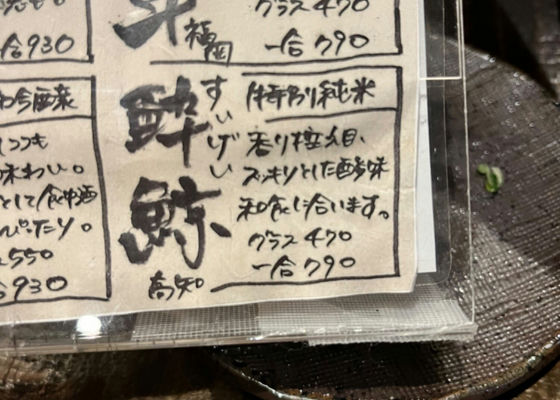 グラス 470
一合 790
福岡
合 930
酔鯨
すいげい
高知
特別純米
香り控え目、
スッキリとした酸味
和食に合います。
グラス 470
一合 790
つつも
味わい。
として食中酒
ぴったり。
550
合 930